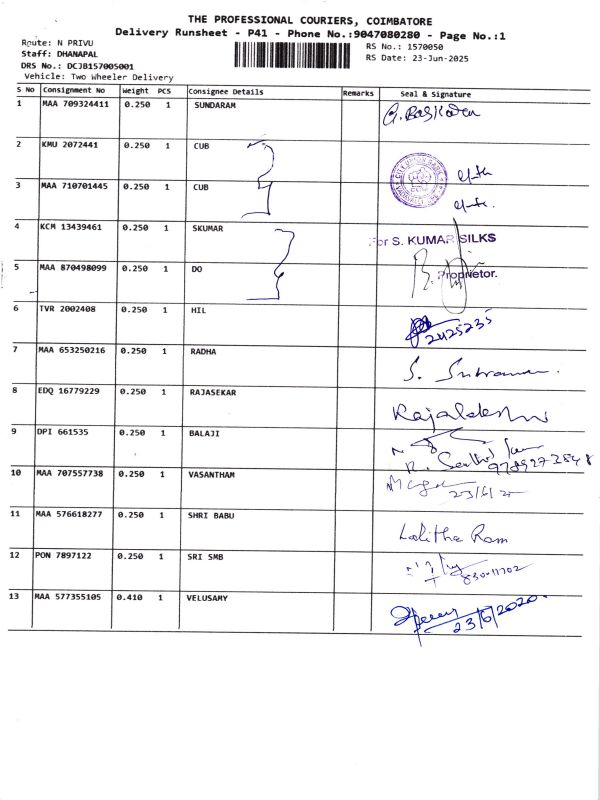 THE PROFESSIONAL COURIERS, COIMBATORE
Delivery Runsheet - P41 - Phone No.:9047080280 - Page No.:1
Route: N PRIVU
Staff: DHANAPAL
DRS No.: DCJB157005001
Vehicle: Two Wheeler Delivery
RS No.: 1570050
RS Date: 23-Jun-2025
S No Consignment No Weight PCS Consignee Details Remarks Seal & Signature
1 MAA 709324411 0.250 1 SUNDARAM
2 KMU 2072441 0.250 1 CUB
3 MAA 710701445 0.250 1 CUB
4 KCM 13439461 0.250 1 SKUMAR For S. KUMAR SILKS
5 MAA 870498099 0.250 1 DO Proprietor.
6 TVR 2002408 0.250 1 HIL
7 MAA 653250216 0.250 1 RADHA
8 EDQ 16779229 0.250 1 RAJASEKAR
9 DPI 661535 0.250 1 BALAJI
10 MAA 707557738 0.250 1 VASANTHAM
11 MAA 576618277 0.250 1 SHRI BABU Lalitha Ram
12 PON 7897122 0.250 1 SRI SMB
13 MAA 577355105 0.410 1 VELUSAMY 23/6/2020.